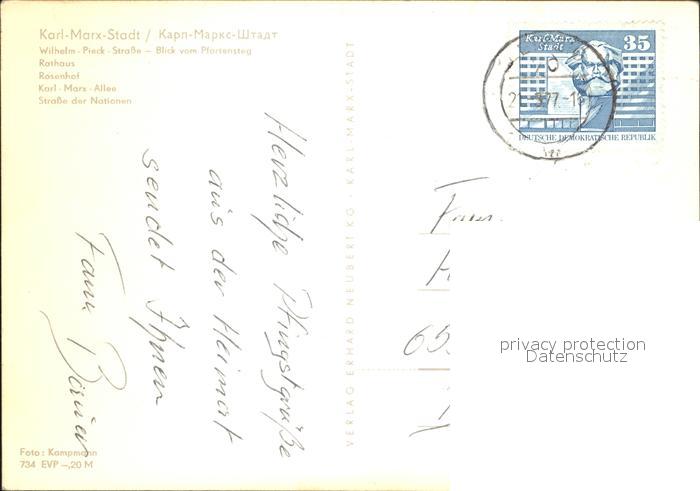 Karl-Marx-Stadt / Карл-Маркс-Штадт
Wilhelm-Pieck-Straße – Blick vom Pfortensteg
Rathaus
Rosenhof
Karl-Marx-Allee
Straße der Nationen
Herzliche Pfingstgrüße
aus der Heimat
sendet Ihnen
Fam.
VERLAG ERHARD NEUBERT KG · KARL-MARX-STADT
Karl-Marx-
Stadt
35
DEUTSCHE DEMOKRATISCHE REPUBLIK
Fam
65
privacy protection
Datenschutz
Foto: Kampmann
734 EVP –,20 M